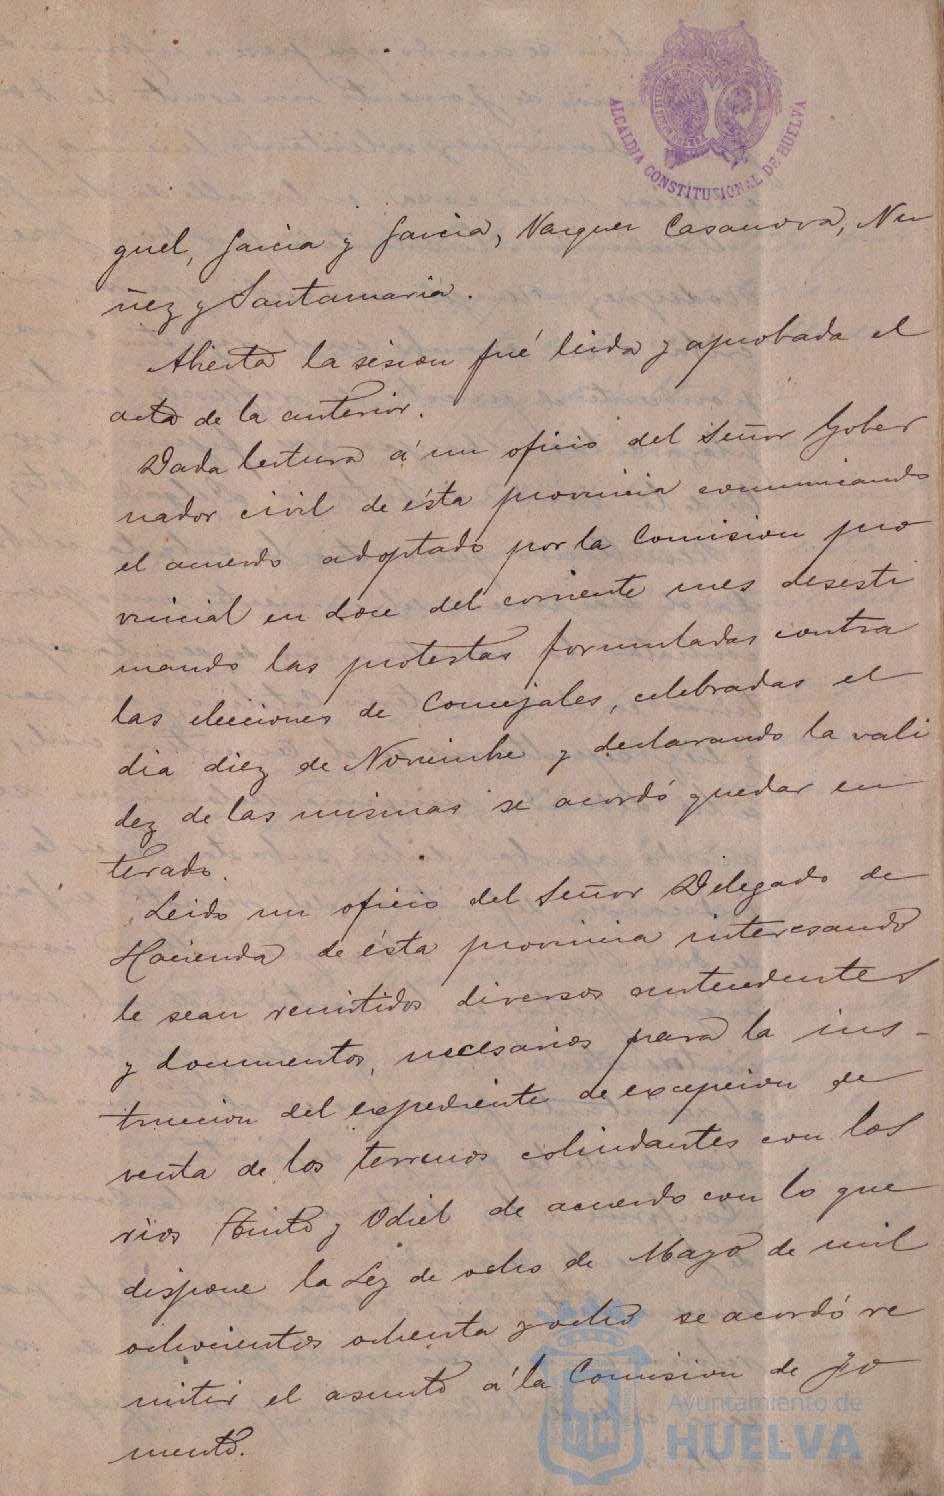 ALCALDIA CONSTITUSIONAL DE HUELVA
guel, Garcia y Garcia, Vazquez Casanova, Nu
ñez y Santamaria.
Abierta la sesion fué leida y aprobada el
acta de la anterior.
Dada lectura á un oficio del Señor Gober
nador civil de ésta provincia comunicando
el acuerdo adoptado por la Comision pro
vincial en doce del corriente mes desesti
mando las protestas formuladas contra
las elecciones de Concejales, celebradas el
dia diez de Noviembre y declarando la vali
dez de las mismas se acordó quedar en
terado.
Leido un oficio del Señor Delegado de
Hacienda de ésta provincia interesando
le sean remitidos diversos antecedentes
y documentos, necesarios para la ins-
truccion del expediente de excepcion de
venta de los terrenos colindantes con los
rios Tinto y Odiel de acuerdo con lo que
dispone la Ley de ocho de Mayo de mil
ochocientos ochenta y ocho se acordó re
mitir el asunto á la Comision de Fo
mento.
Ayuntamiento de
HUELVA